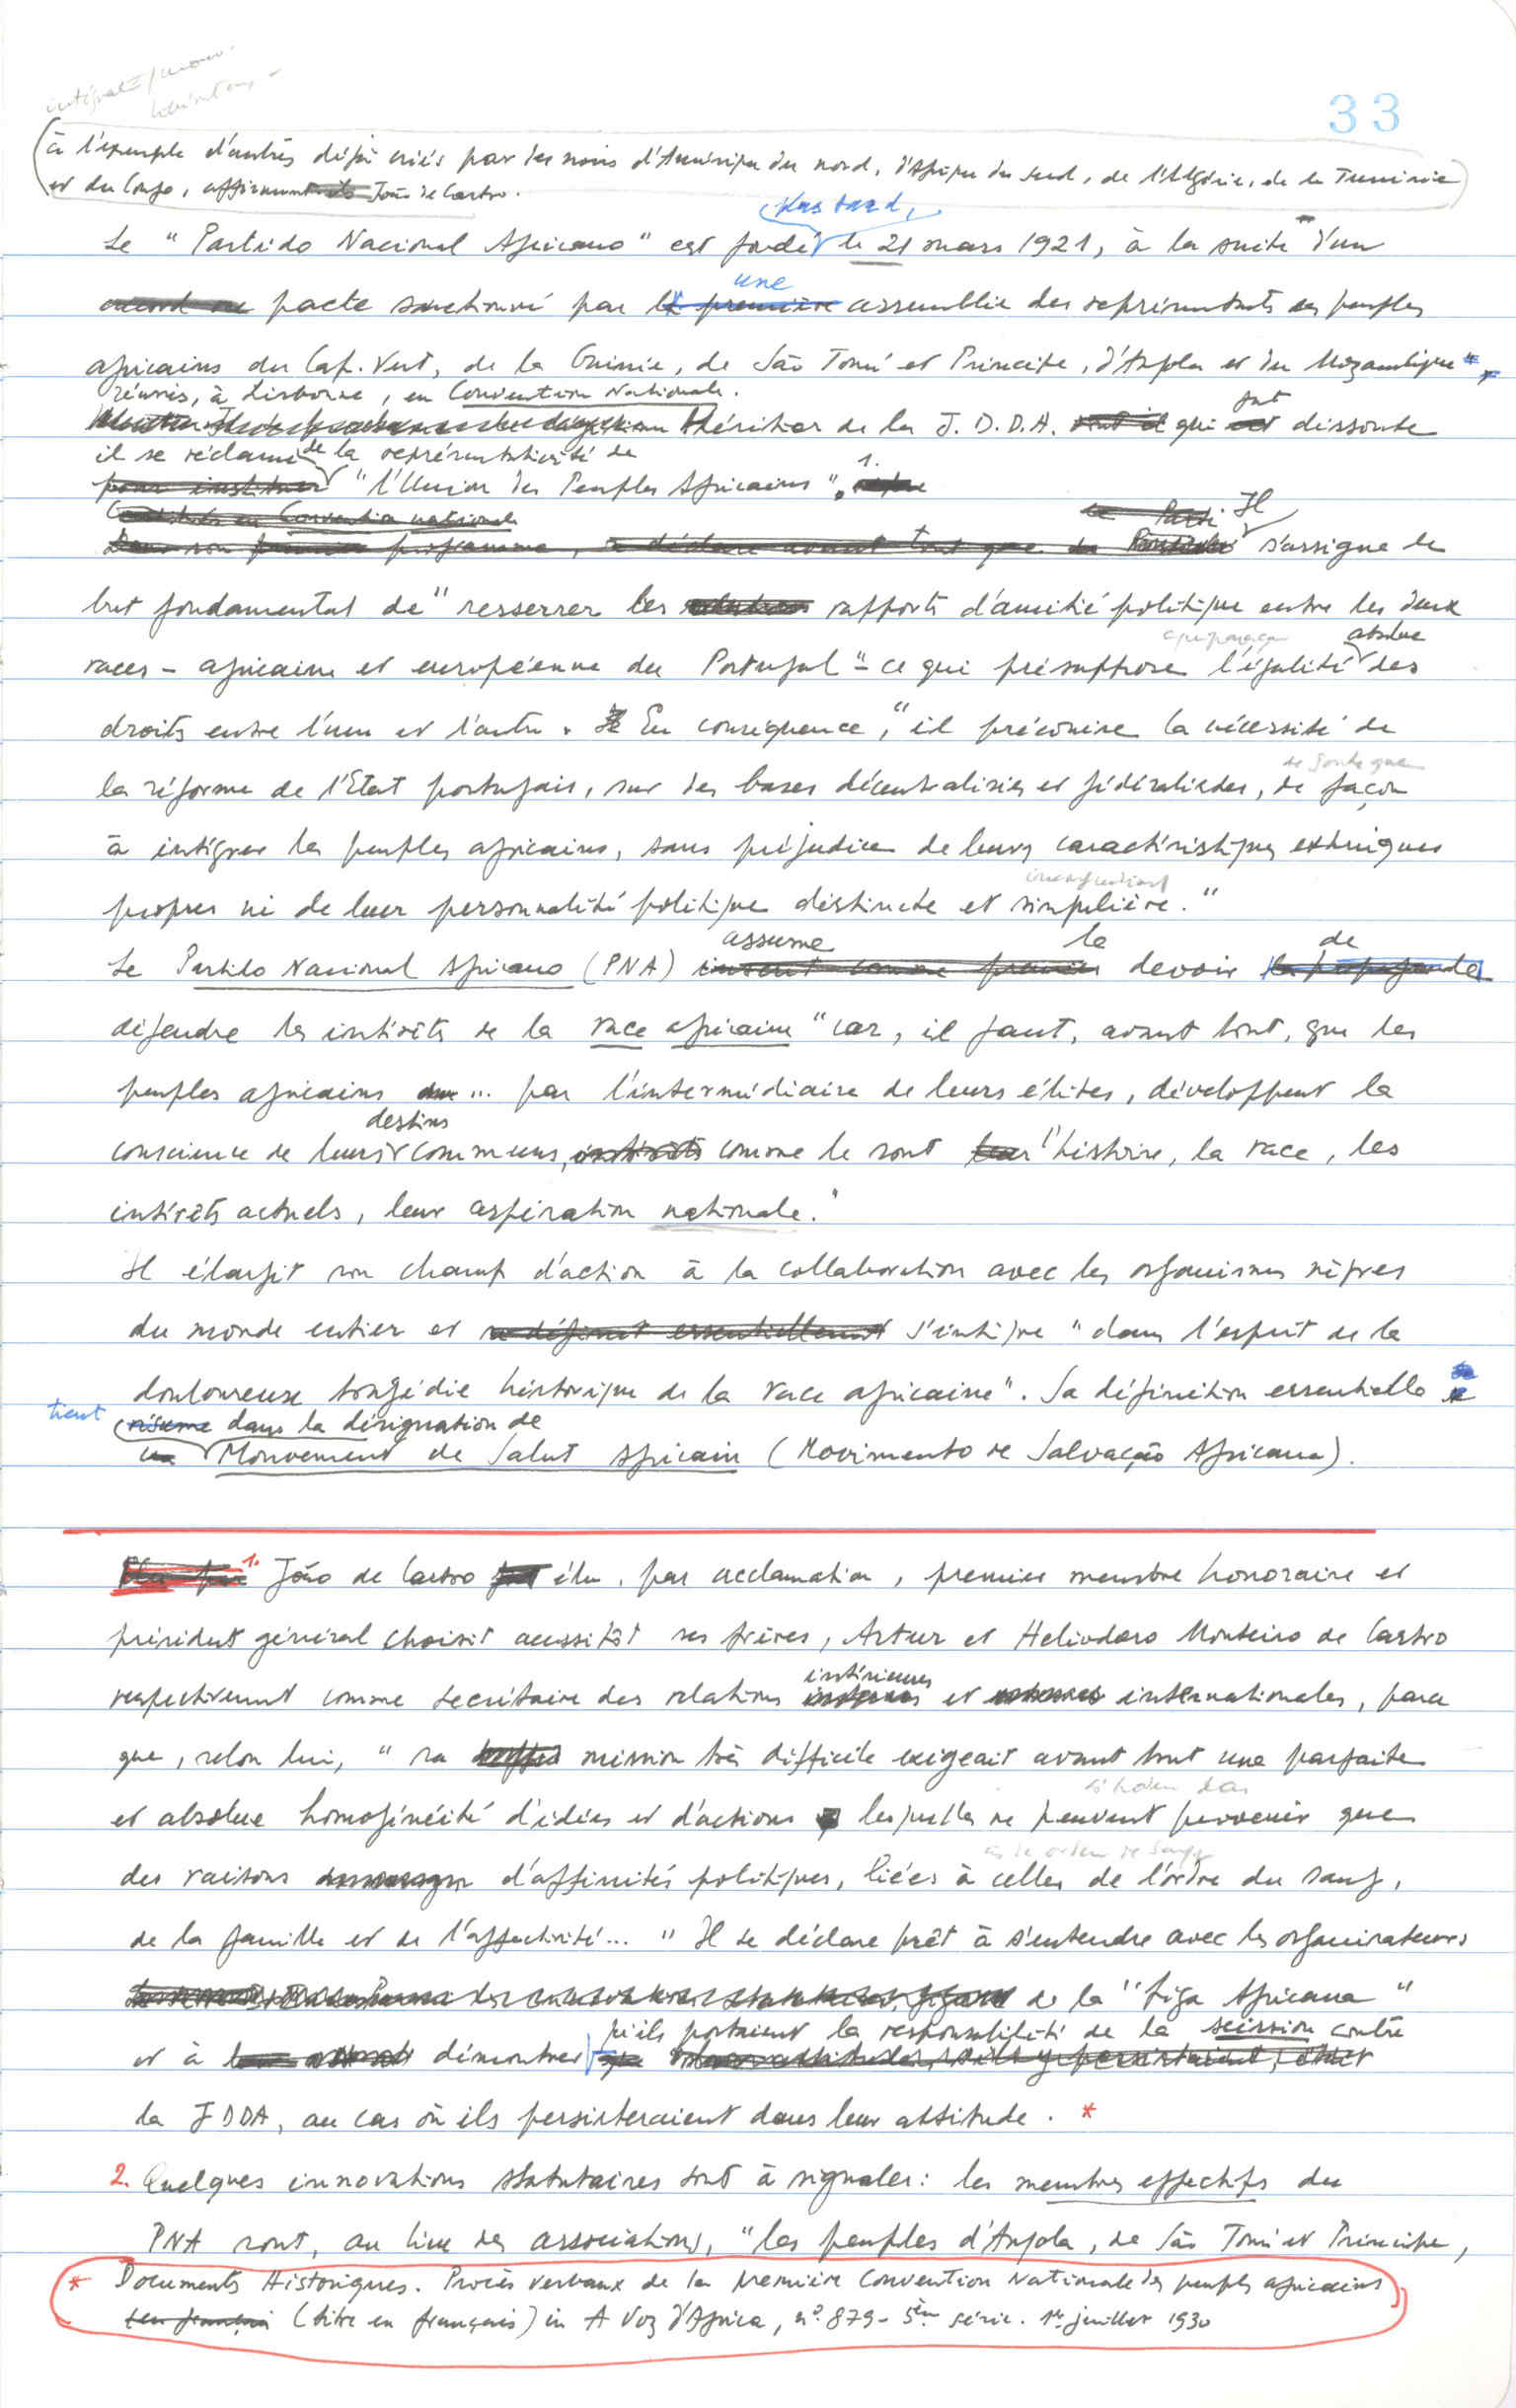 33
(à l'exemple d'autres déjà créés par des noirs d'Amérique du nord, d'Afrique du Sud, de l'Algérie, de la Tunisie
et du Congo, affirment João de Castro.
plus tard,
Le "Partido Nacional Africano" est fondé le 21 mars 1921, à la suite d'un
une
pacte sanctionné par assemblée des représentants des peuples
africains du Cap-Vert, de la Guinée, de São Tomé et Principe, d'Angola et du Mozambique",
réunis, à Lisbonne, en Convention Nationale.
fut
Héritier de la J.D.D.A. qui dissoute
il se réclame de la représentativité de
"l'Union des Peuples Africains". 1.
Il
s'assigne le
but fondamental de "resserrer les rapports d'amitié politique entre les deux
absolue
races - africaine et européenne du Portugal" - ce qui présuppose l'égalité des
droits entre l'une et l'autre. En conséquence, "il préconise la nécessité de
de sorte que
la réforme de l'Etat portugais, sur des bases décentralisées et fédéralistes, de façon
à intégrer les peuples africains, sans préjudice de leurs caractéristiques ethniques
propres ni de leur personnalité politique distincte et singulière."
assume le de
Le Partido Nacional Africano (PNA) devoir
défendre les intérêts de la race africaine "car, il faut, avant tout, que les
peuples africains ... par l'intermédiaire de leurs élites, développent la
destins
conscience de leurs communs, comme le sont l'histoire, la race, les
intérêts actuels, leur aspiration nationale."
Il élargit son champ d'action à la collaboration avec les organismes nègres
du monde entier et s'intègre "dans l'esprit de la
douloureuse tragédie historique de la race africaine". Sa définition essentielle
tient dans la désignation de
Mouvement de Salut Africain (Movimento de Salvação Africana).
1. João de Castro élu, par acclamation, premier membre honoraire et
président général choisit aussitôt ses frères, Artur et Heliodoro Monteiro de Castro
intérieures
respectivement comme secrétaire des relations et internationales, parce
que, selon lui, "sa mission très difficile exigeait avant tout une parfaite
et absolue homogénéité d'idées et d'actions lesquelles ne peuvent provenir que
des raisons d'affinités politiques, liées à celles de l'ordre du sang,
de la famille et de l'affectivité..." Il se déclare prêt à s'entendre avec les organisateurs
de la "Liga Africana"
qu'ils portaient la responsabilité de la scission contre
et à démontrer
la JDDA, au cas où ils persisteraient dans leur attitude. *
2. Quelques innovations statutaires sont à signaler: les membres effectifs du
PNA sont, au lieu des associations, "les peuples d'Angola, de São Tomé et Principe,
* Documents Historiques. Procès verbaux de la première Convention Nationale des peuples africains
(titre en français) in A Voz d'Africa, nº. 879 - 5ème série. 1er juillet 1930